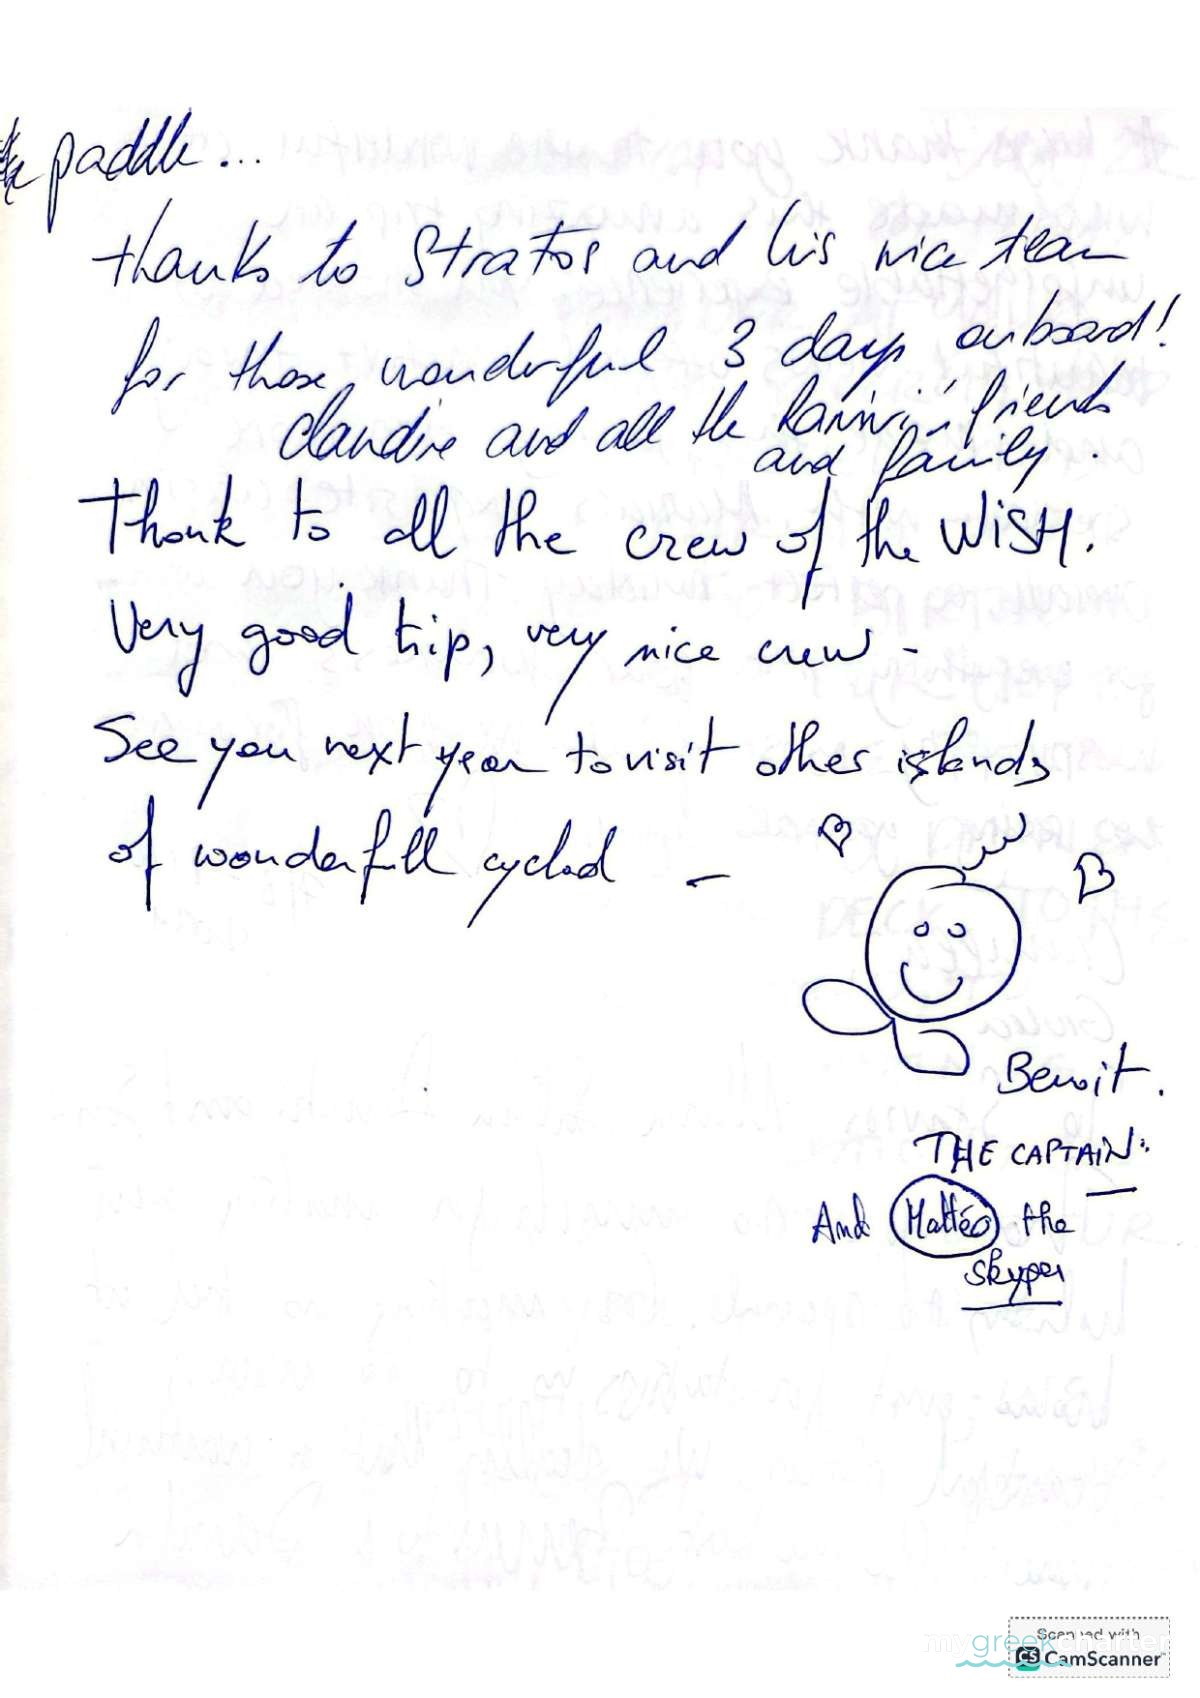 paddle...
thanks to Stratos and his nice team
for those wonderful 3 days onboard!
Claudine and all the friends
and family.
Thank to all the crew of the WISH.
Very good trip, very nice crew -
See you next year to visit other islands
of wonderfull cyclad -
Benoit.
THE CAPTAIN.
And Mattéo the
skyper
Scanned with
mygreekcharter
CS CamScanner